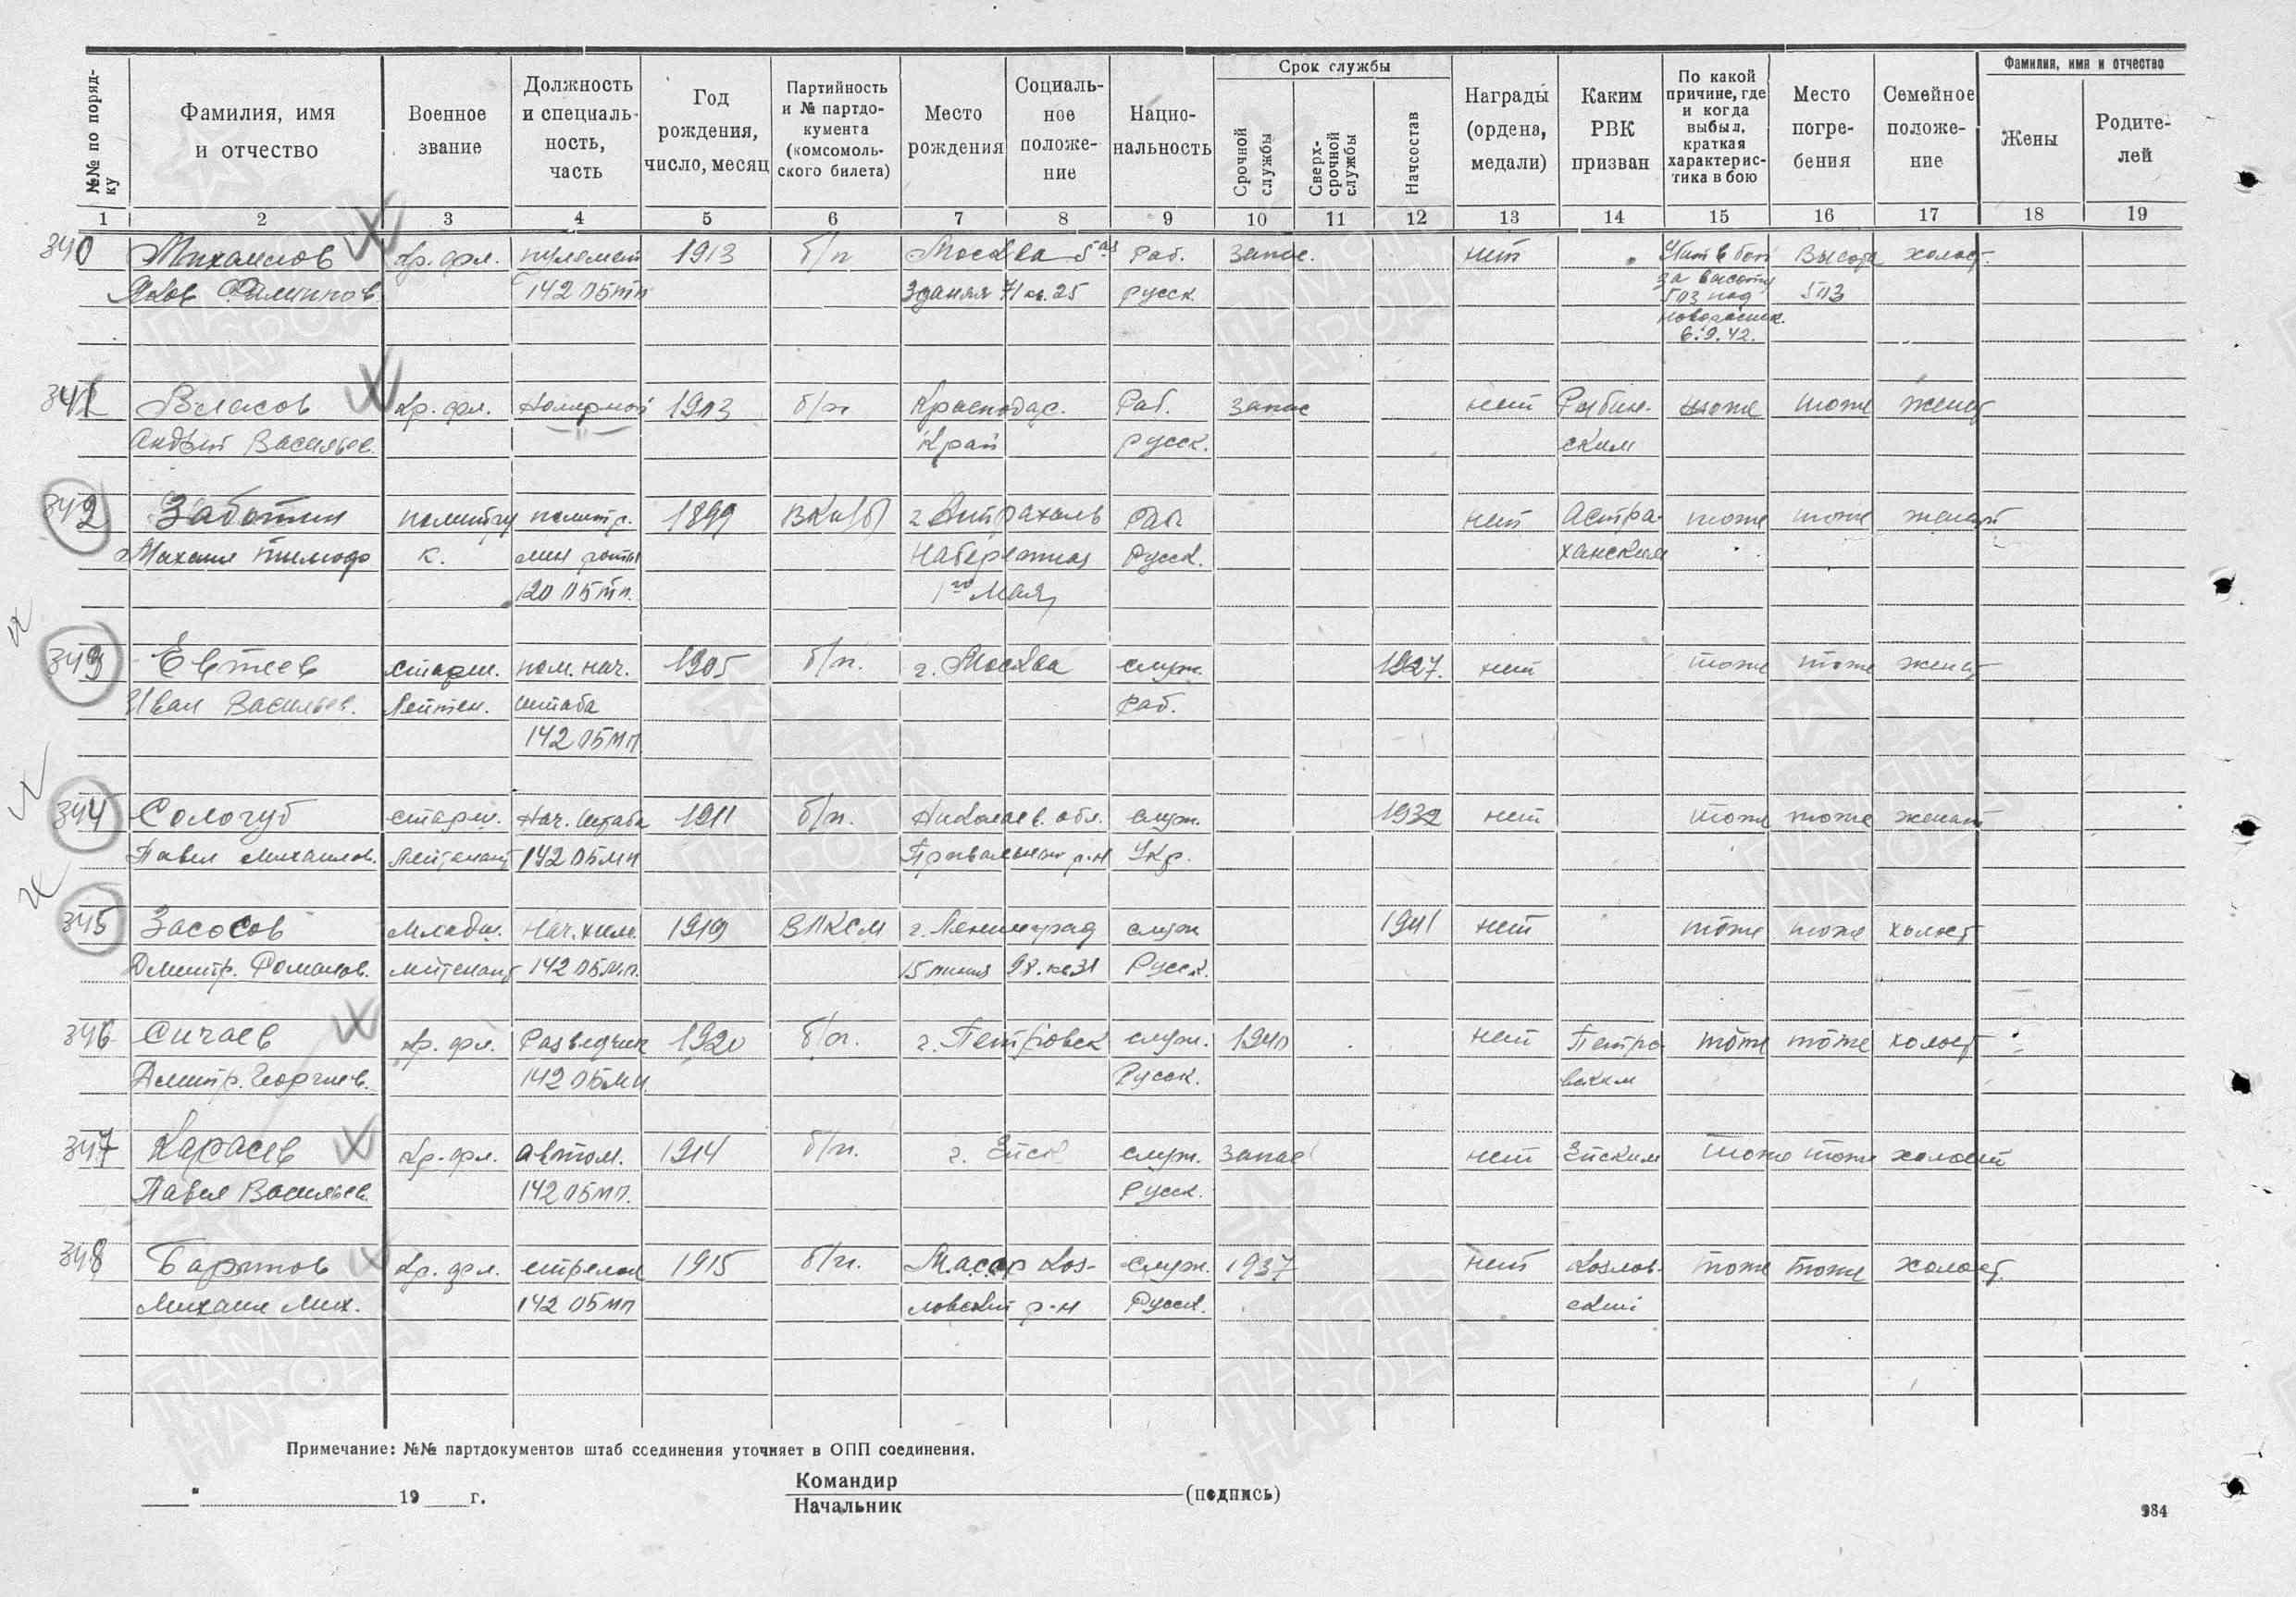 №№ по поряд-
ку
Фамилия, имя
и отчество
Военное
звание
Должность
и специаль-
ность,
часть
Год
рождения,
число, месяц
Партийность
и № партдо-
кумента
(комсомоль-
ского билета)
Место
рождения
Социаль-
ное
положе-
ние
Нацио-
нальность
Срок службы
Срочной
службы
Сверх-
срочной
службы
Начсостав
Награды
(ордена,
медали)
Каким
РВК
призван
По какой
причине, где
и когда
выбыл,
краткая
характерис-
тика в бою
Место
погре-
бения
Семейное
положе-
ние
Фамилия, имя и отчество
Жены
Родите-
лей
1 2 3 4 5 6 7 8 9 10 11 12 13 14 15 16 17 18 19
340 Михаилов кр. фл. пулемет 1913 б/п Москва 5ая Раб. запас. нет Убит в бою Высота холост.
Яков Филиппов. 142 ОБМП Здания 71 кв. 25 русск. за высоту 503
503 под
новоросийск.
6.9.42.
341 Власов кр. фл. 1913 б/п Краснодар. Раб. запас нет тоже тоже женат
Андрей Васильев. Край русск. ским
342 Заботин политру политр. 1899 ВКП(б) г. Раб. нет Астра- тоже тоже женат
Михаил Тимоф к. мин роты Набережная Русск. ханским
120 ОБМП. 1го Мая,
343 Евтеев старш. пом. нач. 1905 б/п. г. Москва служ. 1927. нет тоже тоже женат
Иван Васильев. Лейтен. штаба Раб.
142 ОБМП
344 Сологуб старш. Нач. Штаба 1911 б/п. Николаев. обл. служ. 1932 нет тоже тоже женат
Павел Михаилов. Лейтенант 142 ОБМП р-н Укр.
345 Засосов младш. Нач. хим. 1919 ВЛКСМ г. Ленинград служ 1941 нет тоже тоже холост
Дмитр. Романов. лейтенант 142 ОБМП. 15 линия 98. кв 31 Русск.
346 Сичаев кр. фл. Разведчик 1920 б/п. г. Петровск служ. 1940 нет Петро- тоже тоже холост
Дмитр. Георгиев. 142 ОБМП. Русск. вским
347 Карасев кр. фл. автом. 1914 б/п. г. Ейск служ. запас нет Ейским тоже тоже холост
Павел Васильев. 142 ОБМП. Русск.
348 кр. фл. стрелок 1915 б/п. Коз- служ. 1937 нет Козлов- тоже тоже холост.
Михаил Мих. 142 ОБМП ловский р-н Русск. ский
Примечание: №№ партдокументов штаб соединения уточняет в ОПП соединения.
Командир
19 г. (подпись)
Начальник
984
ПАМЯТЬ
НАРОДА